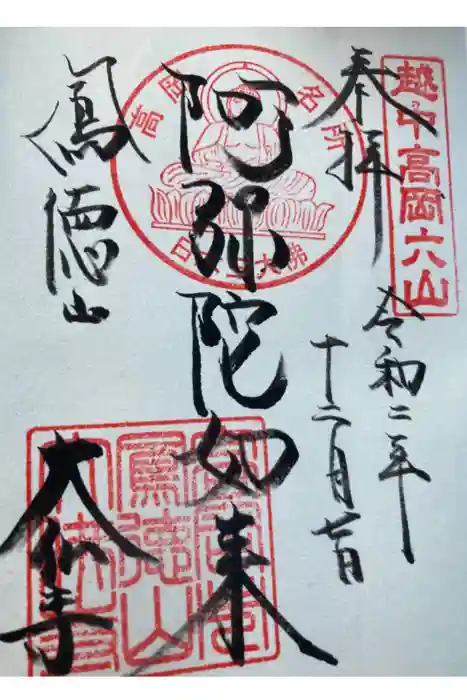 越中高岡六山
奉拝
令和二年
十二月
高岡名所
日本三大佛
阿弥陀如来
鳳徳山
大仏寺
鳳徳山
大佛寺